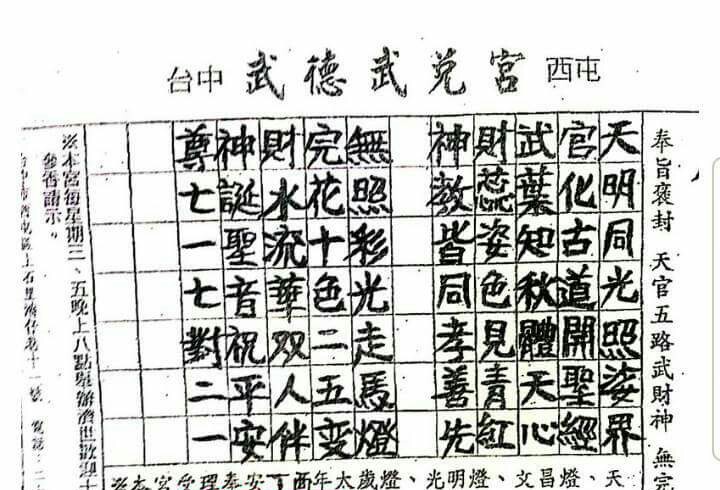 台中 武德武兌宮 西屯
奉旨褒封 天官五路武財神 無完
天明同光照姿界
官化古道開聖經
武葉知秋體天心
財蕊姿色見青紅
神教皆同孝善先
無照彩光走馬燈
完花十色二五變
財水流華双人伴
神誕聖音祝平安
尊七一七對二一
※本宮每星期三、五晚上八點舉辦濟世歡迎
參香請示。
※本宮受理奉安丁酉年太歲燈、光明燈、文昌燈、天